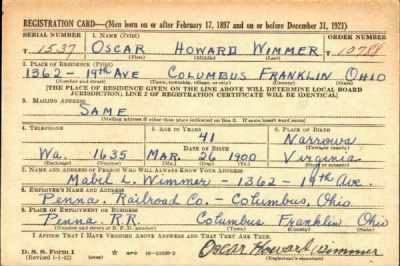 REGISTRATION CARD—(Men born on or after February 17, 1897 and on or before December 31, 1921)
SERIAL NUMBER 1. NAME (Print) ORDER NUMBER
T 1537 OSCAR HOWARD WIMMER T 10788
(First) (Middle) (Last)
2. PLACE OF RESIDENCE (Print)
1362-19th AVE COLUMBUS FRANKLIN OHIO
(Number and street) (Town, township, village, or city) (County) (State)
[THE PLACE OF RESIDENCE GIVEN ON THE LINE ABOVE WILL DETERMINE LOCAL BOARD
JURISDICTION; LINE 2 OF REGISTRATION CERTIFICATE WILL BE IDENTICAL]
3. MAILING ADDRESS
SAME
[Mailing address if other than place indicated on line 2. If same insert word same]
4. TELEPHONE 5. AGE IN YEARS 6. PLACE OF BIRTH
41 Narrows
DATE OF BIRTH (Town or county)
Wa. 1635 MAR. 26 1900 Virginia
(Exchange) (Number) (Mo.) (Day) (Yr.) (State or country)
7. NAME AND ADDRESS OF PERSON WHO WILL ALWAYS KNOW YOUR ADDRESS
Mabel L. Wimmer - 1362 - 19th Ave.
8. EMPLOYER'S NAME AND ADDRESS
Penna. Railroad Co. - Columbus, Ohio
9. PLACE OF EMPLOYMENT OR BUSINESS
Penna. R.R. Columbus Franklin Ohio
(Number and street or R. F. D. number) (Town) (County) (State)
I AFFIRM THAT I HAVE VERIFIED ABOVE ANSWERS AND THAT THEY ARE TRUE.
D. S. S. Form 1
(Revised 1-1-42) (over) Oscar Howard Wimmer